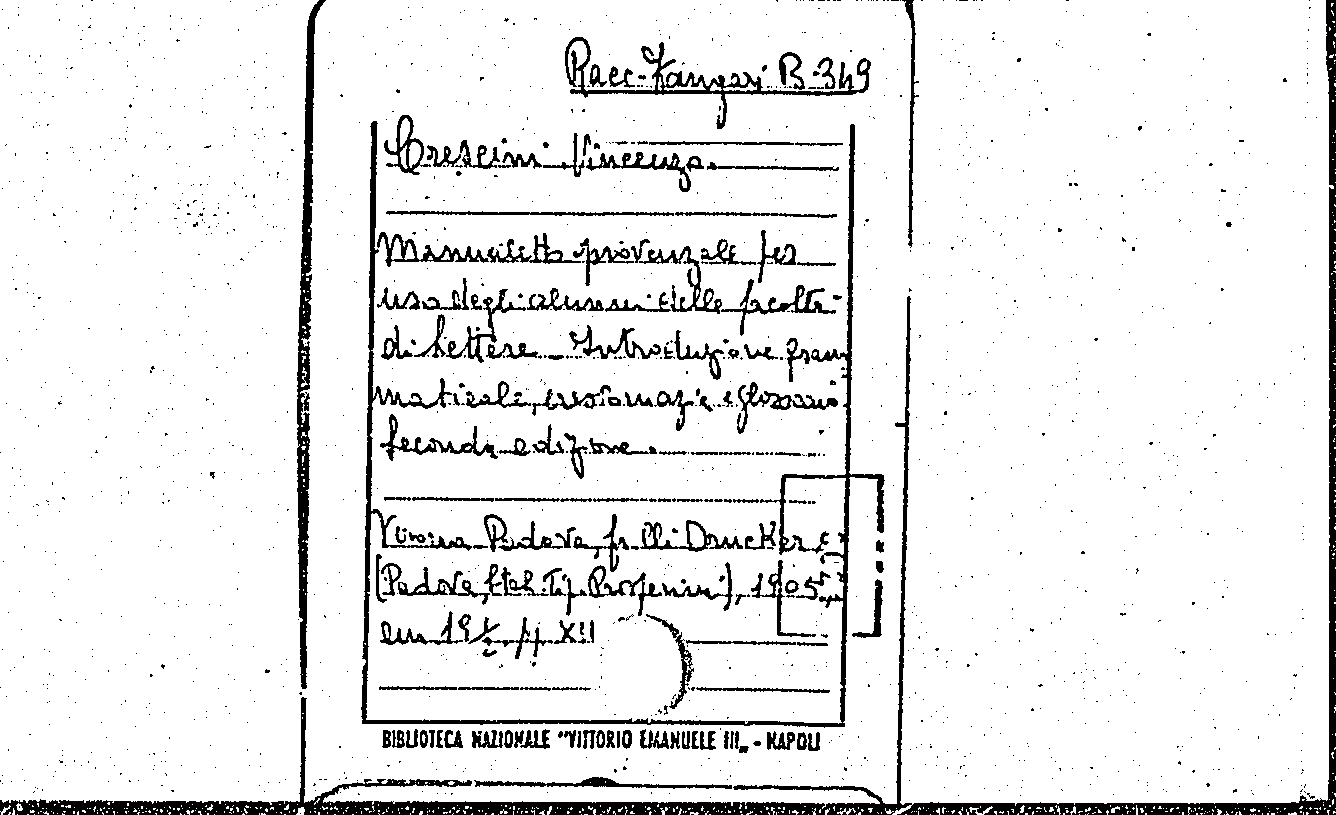 Racc. Zangari B-349
Crescini Vincenzo.
Manualetto provenzale per
uso degli alunni delle facoltà
di Lettere - Introduzione gram
maticale, crestomazia e glossario
seconda edizione.
Verona Padova, f.lli Drucker
(Padova, Stab. Tip. Prosperini), 1905,
cm 19 1/2. pp. XII
BIBLIOTECA NAZIONALE "VITTORIO EMANUELE III„ - NAPOLI